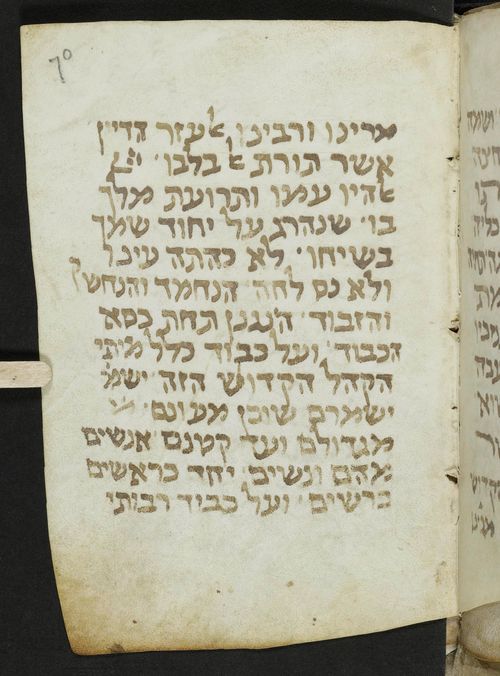 70
מרינו ורבינו אלעזר הדיין
אשר תורת אל בלבו
אלהיו עמו ותרועת מלך
בו· שנהרג על יחוד שמך
בשיחו· לא כהתה עינו
ולא נס לחה· הנחמד והנחשק
והזבוד· הנגנז תחת כסא
הכבוד· ועל כבוד כלל מיתי
הקהל הקדוש הזה ישמ׳
ישמרם שוכן מעונם·
מגדולם ועד קטנם אנשים
מהם ונשים· יחד כראשים
כרשים· ועל כביד רבותי